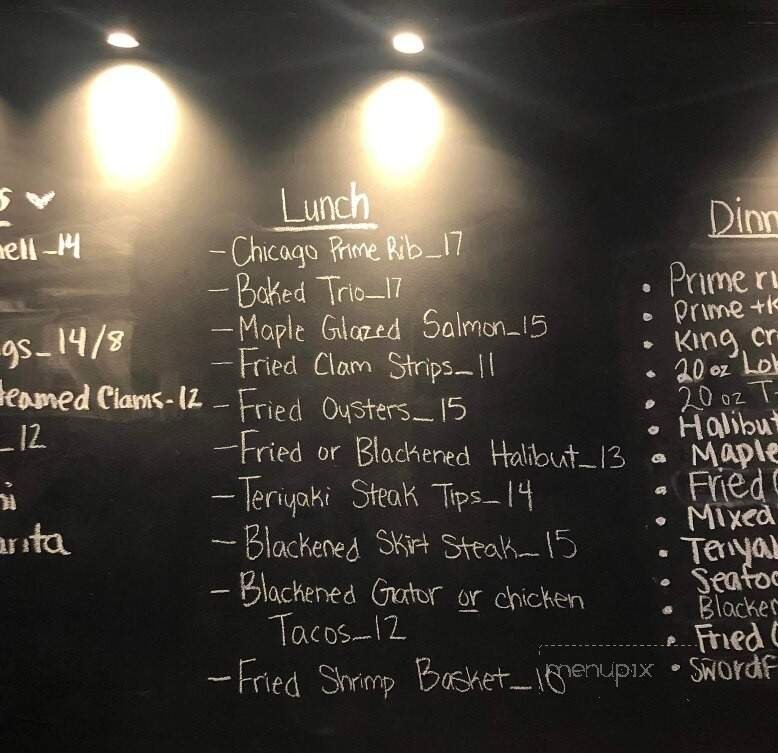 s ♥
ell - 14
gs - 14/8
teamed Clams - 12
- 12
hi
arita
Lunch
- Chicago Prime Rib - 17
- Baked Trio - 17
- Maple Glazed Salmon - 15
- Fried Clam Strips - 11
- Fried Oysters - 15
- Fried or Blackened Halibut - 13
- Teriyaki Steak Tips - 14
- Blackened Skirt Steak - 15
- Blackened Gator or chicken
Tacos - 12
- Fried Shrimp Basket - 10
menupix
Dinn
• Prime ri
• Prime + K
• King Cr
• 20 oz Lo
• 20 oz T
• Halibut
• Maple
• Fried
• Mixed
• Teriyak
• Seafoo
• Blacken
• Fried
• Swordf